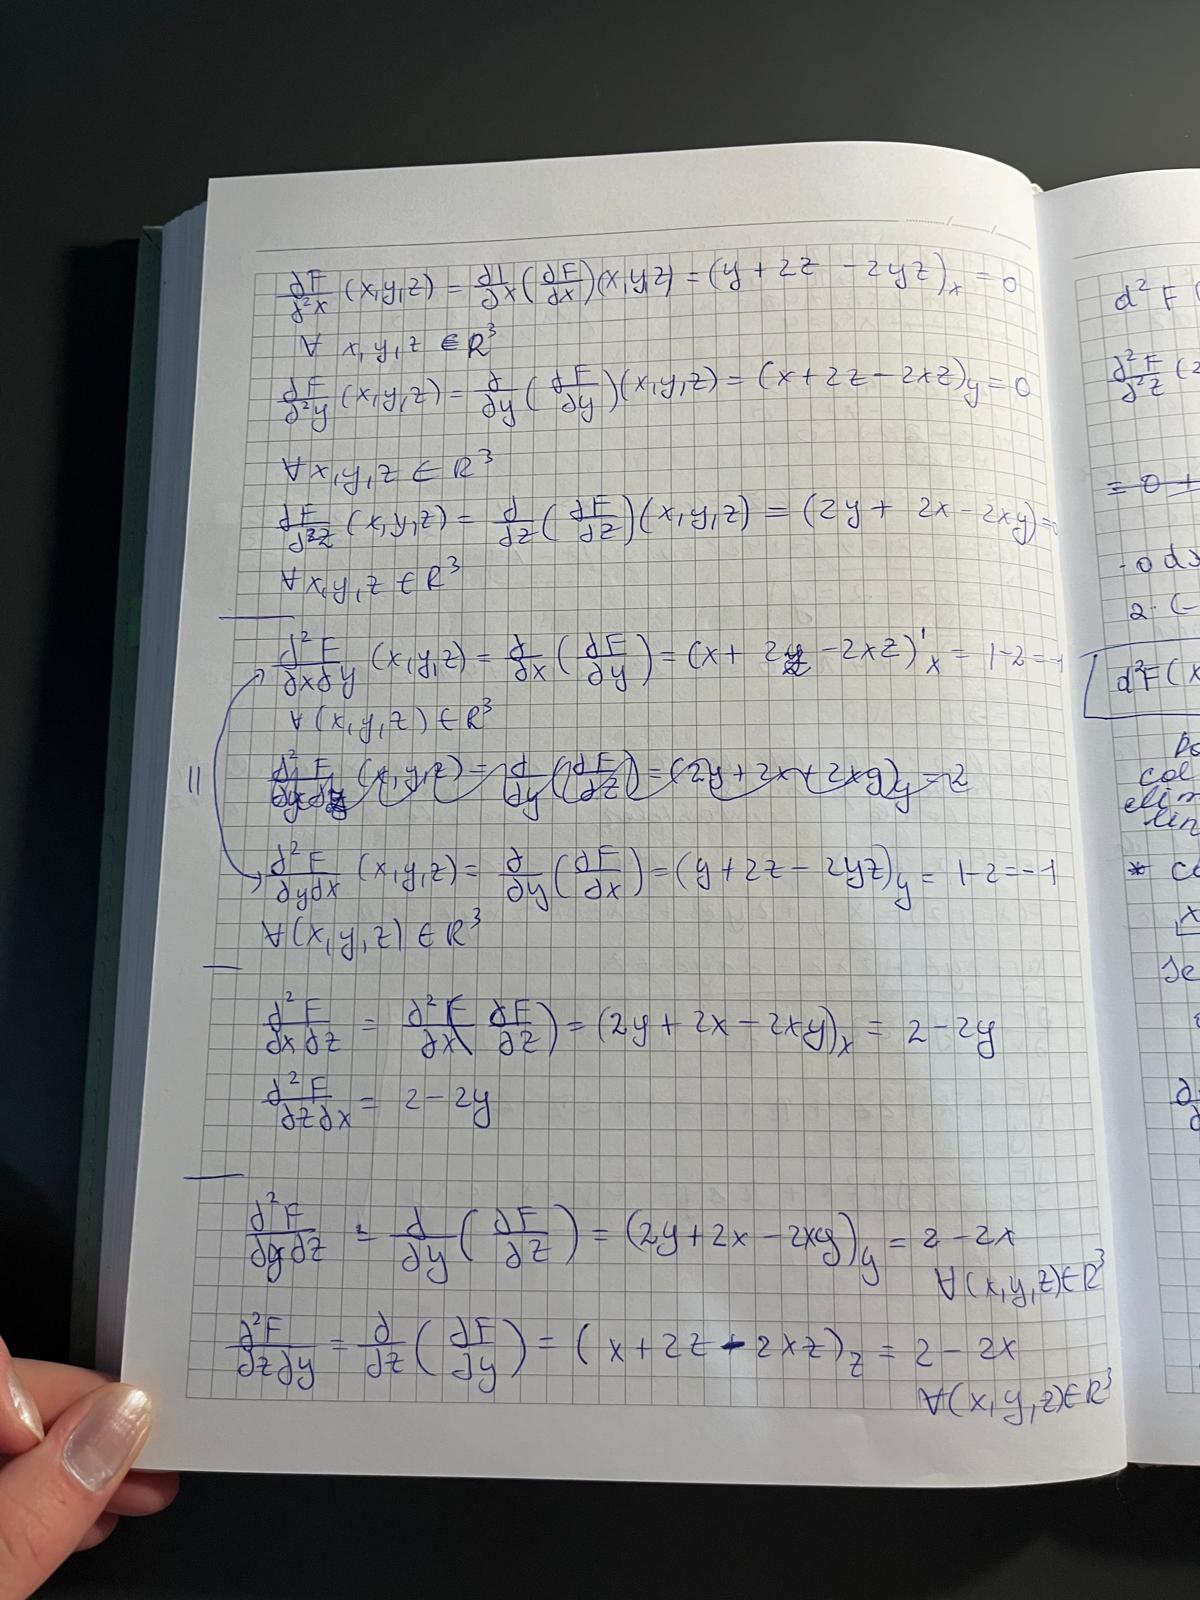 ∂F/∂²x (x,y,z) = ∂/∂x (∂F/∂x)(x,y,z) = (y + 2z - 2yz)ₓ = 0
∀ x, y, z ∈ R³
∂F/∂²y (x,y,z) = ∂/∂y (∂F/∂y)(x,y,z) = (x + 2z - 2xz)y = 0
∀ x, y, z ∈ R³
∂F/∂²z (x,y,z) = ∂/∂z (∂F/∂z)(x,y,z) = (2y + 2x - 2xy) =
∀ x, y, z ∈ R³
∂²F/∂x∂y (x,y,z) = ∂/∂x (∂F/∂y) = (x + 2z - 2xz)'ₓ = 1-2 = -1
∀ (x, y, z) ∈ R³
∂²F/∂y∂z (x,y,z) = ∂/∂y (∂F/∂z) = (2y + 2x + 2xy)y = 2
||
∂²F/∂y∂x (x,y,z) = ∂/∂y (∂F/∂x) = (y + 2z - 2yz)y = 1-2 = -1
∀ (x, y, z) ∈ R³
∂²F/∂x∂z = ∂²F/∂x (∂F/∂z) = (2y + 2x - 2xy)ₓ = 2 - 2y
∂²F/∂z∂x = 2 - 2y
∂²F/∂y∂z = ∂/∂y (∂F/∂z) = (2y + 2x - 2xy)y = 2 - 2x
∀ (x, y, z) ∈ R³
∂²F/∂z∂y = ∂/∂z (∂F/∂y) = (x + 2z - 2xz)z = 2 - 2x
∀ (x, y, z) ∈ R³
d²F (
∂²F/∂²z (2
= 0 +
2· (-
d²F(x
col
*